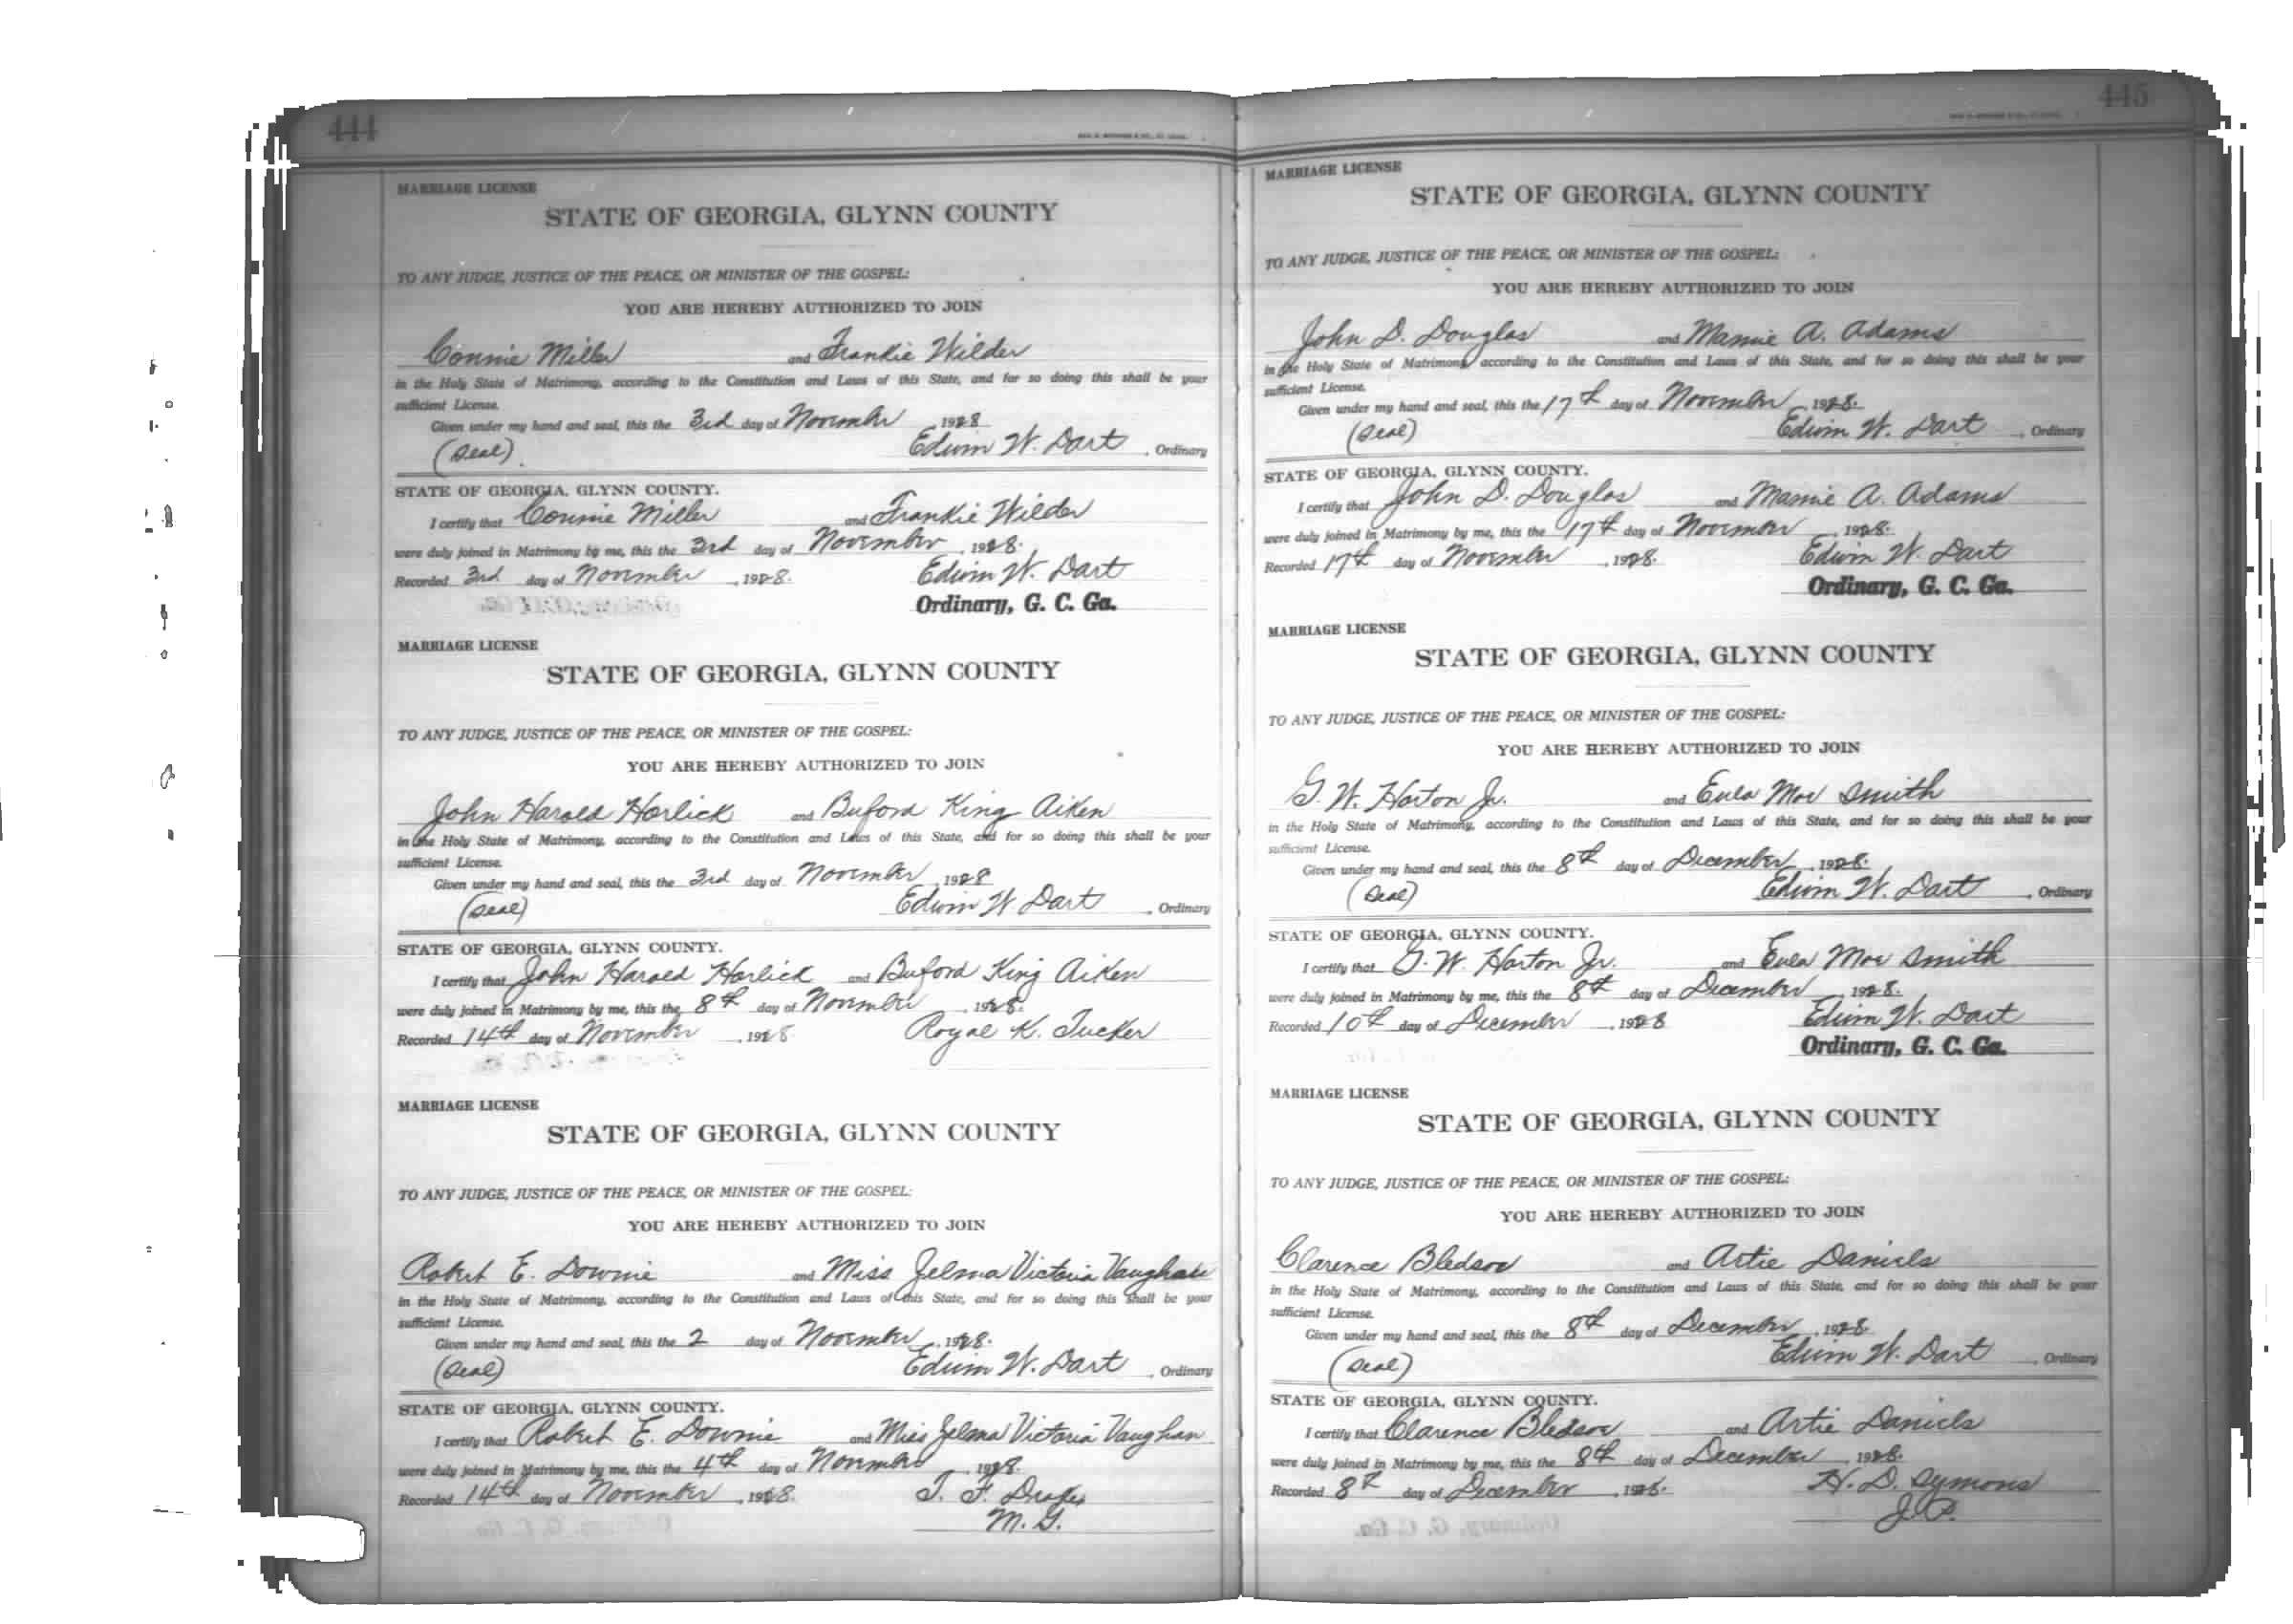 444
MARRIAGE LICENSE
STATE OF GEORGIA, GLYNN COUNTY
TO ANY JUDGE, JUSTICE OF THE PEACE, OR MINISTER OF THE GOSPEL:
YOU ARE HEREBY AUTHORIZED TO JOIN
Connie Miller and Frankie Wilder
in the Holy State of Matrimony, according to the Constitution and Laws of this State, and for so doing this shall be your
sufficient License.
Given under my hand and seal, this the 3rd day of November, 1928
(Seal) Edwin W. Dart, Ordinary
STATE OF GEORGIA, GLYNN COUNTY.
I certify that Connie Miller and Frankie Wilder
were duly joined in Matrimony by me, this the 3rd day of November, 1928.
Recorded 3rd day of November, 1928. Edwin W. Dart
Ordinary, G. C. Ga.
MARRIAGE LICENSE
STATE OF GEORGIA, GLYNN COUNTY
TO ANY JUDGE, JUSTICE OF THE PEACE, OR MINISTER OF THE GOSPEL:
YOU ARE HEREBY AUTHORIZED TO JOIN
John Harold Horlick and Buford King Aiken
in the Holy State of Matrimony, according to the Constitution and Laws of this State, and for so doing this shall be your
sufficient License.
Given under my hand and seal, this the 3rd day of November, 1928
(Seal) Edwin W. Dart, Ordinary
STATE OF GEORGIA, GLYNN COUNTY.
I certify that John Harold Horlick and Buford King Aiken
were duly joined in Matrimony by me, this the 8th day of November, 1928.
Recorded 14th day of November, 1928 Royal K. Tucker
MARRIAGE LICENSE
STATE OF GEORGIA, GLYNN COUNTY
TO ANY JUDGE, JUSTICE OF THE PEACE, OR MINISTER OF THE GOSPEL:
YOU ARE HEREBY AUTHORIZED TO JOIN
Robert E. Downie and Miss Zelma Victoria Vaughan
in the Holy State of Matrimony, according to the Constitution and Laws of this State, and for so doing this shall be your
sufficient License.
Given under my hand and seal, this the 2 day of November, 1928.
(Seal) Edwin W. Dart, Ordinary
STATE OF GEORGIA, GLYNN COUNTY.
I certify that Robert E. Downie and Miss Zelma Victoria Vaughan
were duly joined in Matrimony by me, this the 4th day of November, 1928.
Recorded 14th day of November, 1928. T. F. Drake
M. G.
445
MARRIAGE LICENSE
STATE OF GEORGIA, GLYNN COUNTY
TO ANY JUDGE, JUSTICE OF THE PEACE, OR MINISTER OF THE GOSPEL:
YOU ARE HEREBY AUTHORIZED TO JOIN
John D. Douglas and Mamie A. Adams
in the Holy State of Matrimony, according to the Constitution and Laws of this State, and for so doing this shall be your
sufficient License.
Given under my hand and seal, this the 17th day of November, 1928.
(Seal) Edwin W. Dart, Ordinary
STATE OF GEORGIA, GLYNN COUNTY.
I certify that John D. Douglas and Mamie A. Adams
were duly joined in Matrimony by me, this the 17th day of November, 1928.
Recorded 17th day of November, 1928. Edwin W. Dart
Ordinary, G. C. Ga.
MARRIAGE LICENSE
STATE OF GEORGIA, GLYNN COUNTY
TO ANY JUDGE, JUSTICE OF THE PEACE, OR MINISTER OF THE GOSPEL:
YOU ARE HEREBY AUTHORIZED TO JOIN
G. W. Horton Jr. and Eula Mae Smith
in the Holy State of Matrimony, according to the Constitution and Laws of this State, and for so doing this shall be your
sufficient License.
Given under my hand and seal, this the 8th day of December, 1928.
(Seal) Edwin W. Dart, Ordinary
STATE OF GEORGIA, GLYNN COUNTY.
I certify that G. W. Horton Jr. and Eula Mae Smith
were duly joined in Matrimony by me, this the 8th day of December, 1928.
Recorded 10th day of December, 1928 Edwin W. Dart
Ordinary, G. C. Ga.
MARRIAGE LICENSE
STATE OF GEORGIA, GLYNN COUNTY
TO ANY JUDGE, JUSTICE OF THE PEACE, OR MINISTER OF THE GOSPEL:
YOU ARE HEREBY AUTHORIZED TO JOIN
Clarence Bledsoe and Artie Daniels
in the Holy State of Matrimony, according to the Constitution and Laws of this State, and for so doing this shall be your
sufficient License.
Given under my hand and seal, this the 8th day of December, 1928
(Seal) Edwin W. Dart, Ordinary
STATE OF GEORGIA, GLYNN COUNTY.
I certify that Clarence Bledsoe and Artie Daniels
were duly joined in Matrimony by me, this the 8th day of December, 1928.
Recorded 8th day of December, 1928. H. D. Symons
J.P.